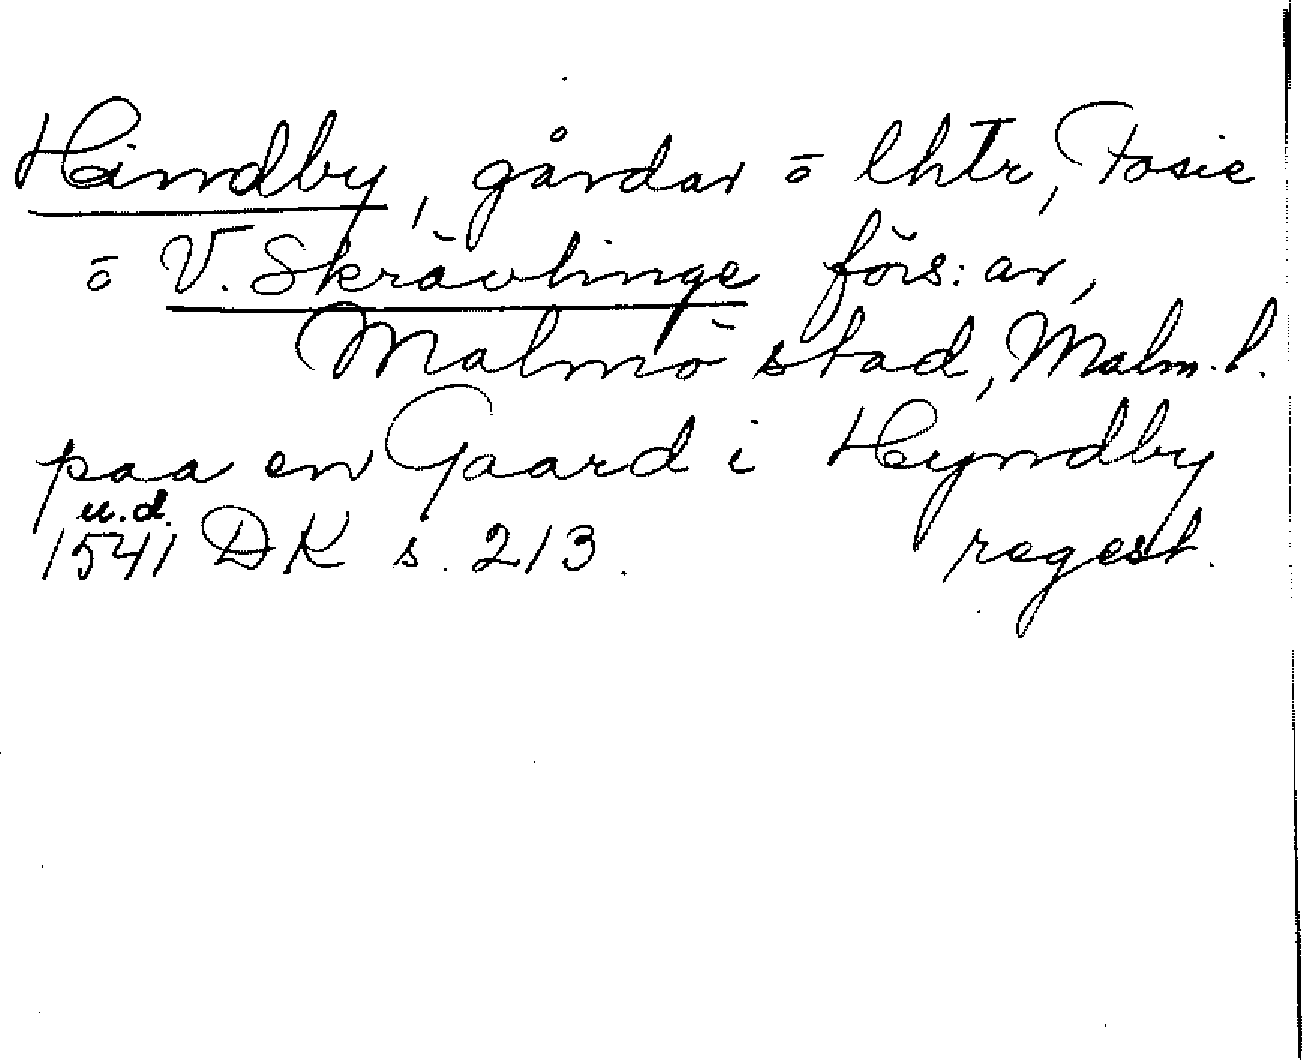 Hindby, gårdar o lhtr, Fosie
o V. Skrävlinge förs:ar,
Malmö stad, Malm. l.
paa en Gaard i Hyndby
u.d.
1541 DK s. 213. regest.